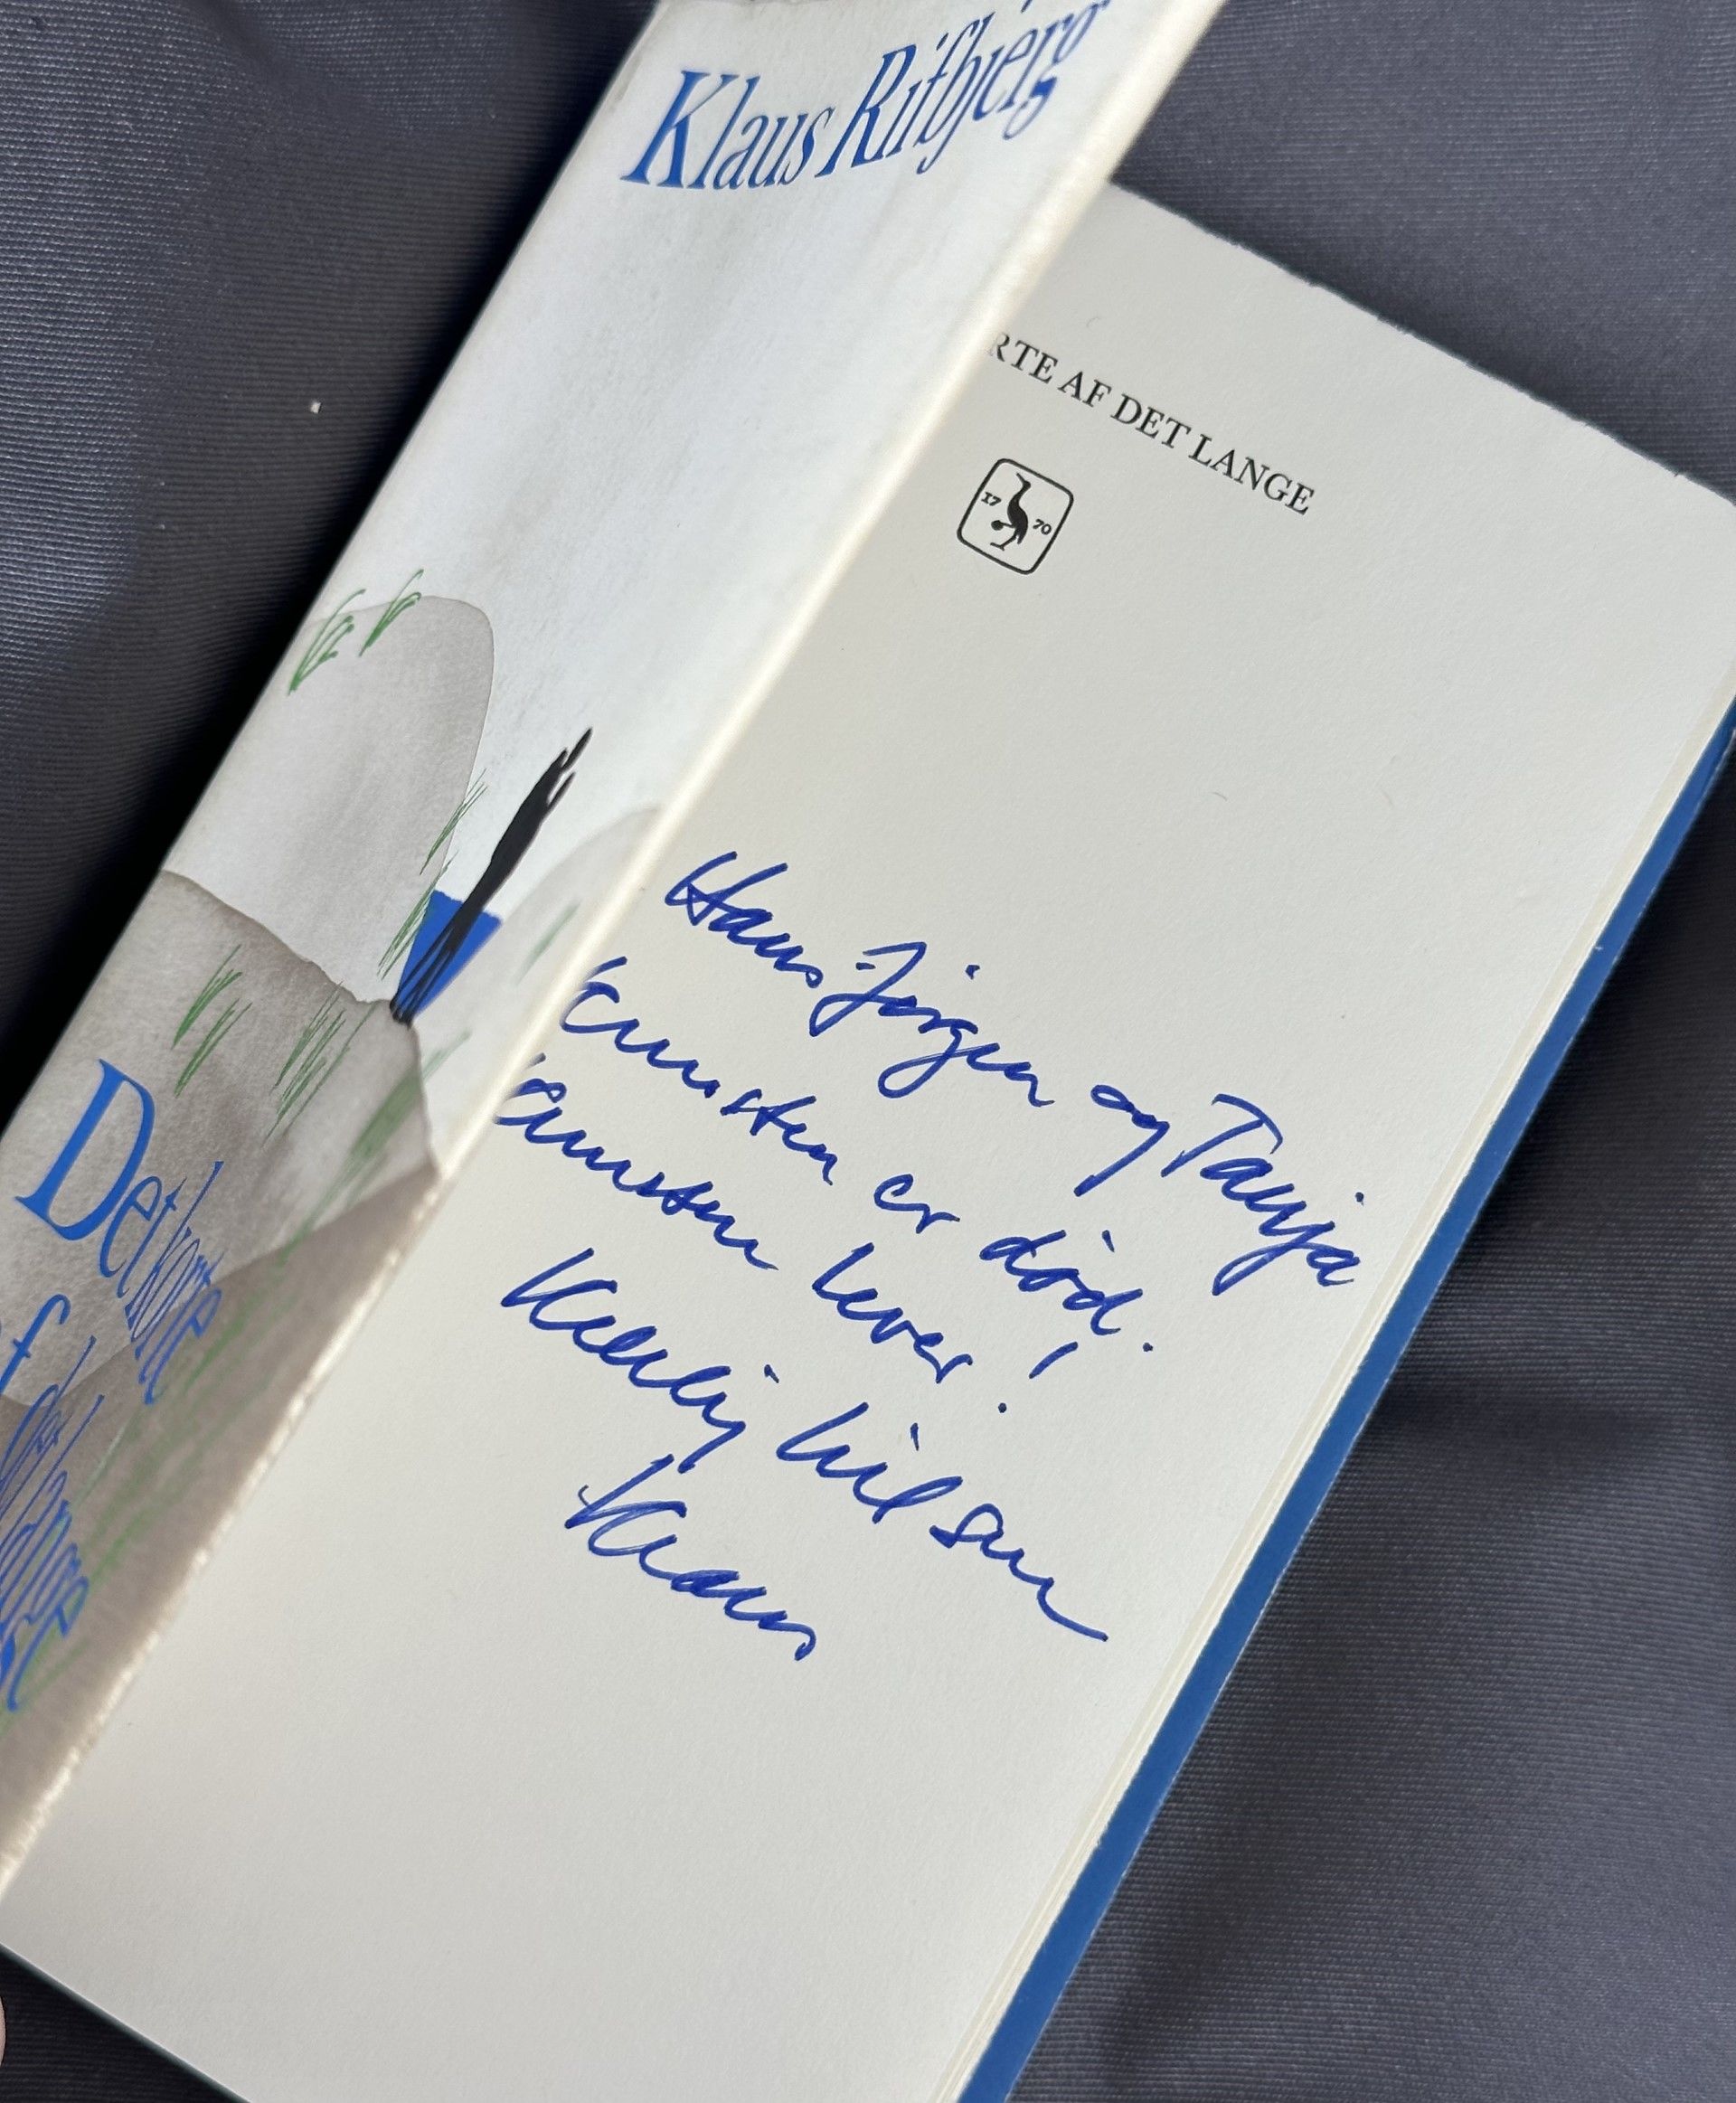 Klaus Rifbjerg
Det korte
af det lange
RTE AF DET LANGE
17 70
Hans-Jørgen og Tanja
Kunsten er død.
Kunsten lever!
Kærlig hilsen
Klaus